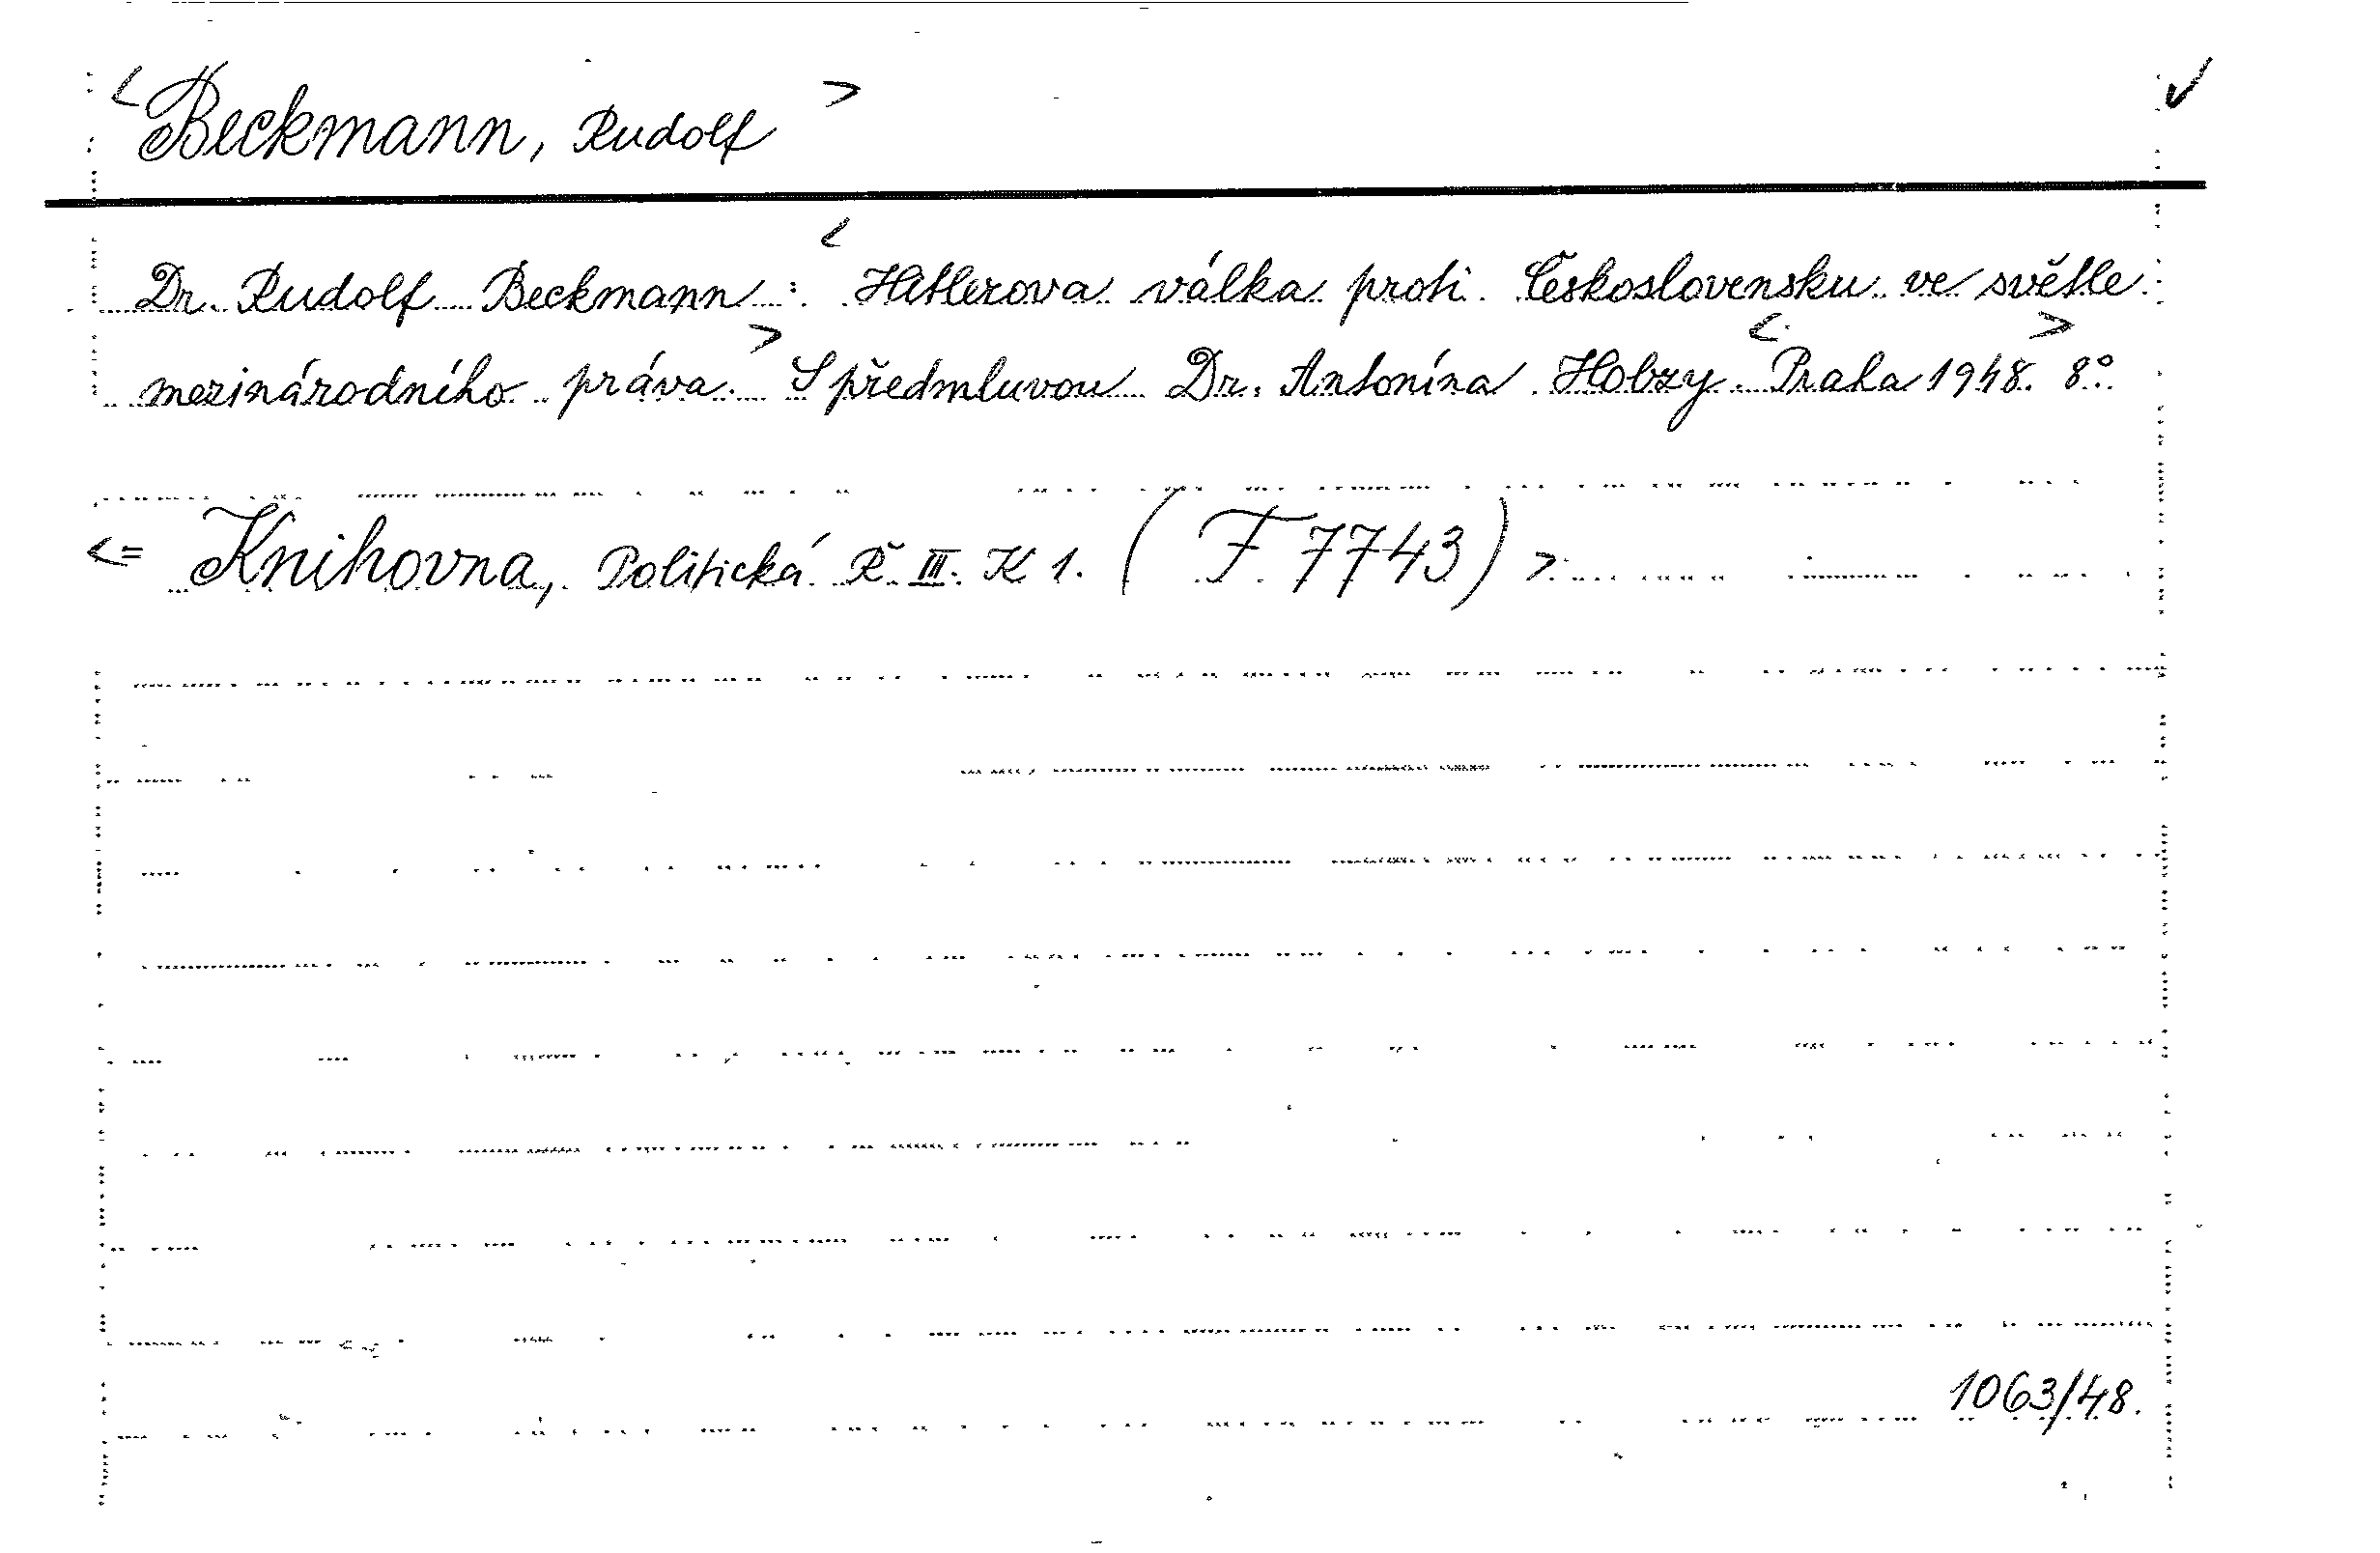 <Beckmann, Rudolf> ✓
Dr. Rudolf Beckmann: <Hitlerova válka proti Československu ve světle
mezinárodního práva.> S předmluvou Dr. Antonína Hobzy. <Praha 1948.> 8°.
<= Knihovna, Politická Ř. III. K 1. (F 7743)>
1063/48.